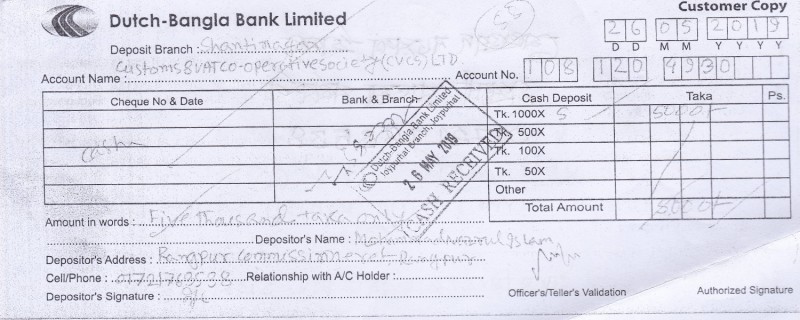 Customer Copy
Dutch-Bangla Bank Limited
26 05 2019
D D M M Y Y Y Y
Deposit Branch : Shantinagar
Account Name : Customs & VAT CO-operative society (CVCS) LTD.
Account No. 108 120 4930
Cheque No & Date Bank & Branch Cash Deposit Taka Ps.
Tk. 1000X 5 5000/-
500X
Tk. 100X
Tk. 50X
Other
Total Amount 5000/-
Cash
Dutch-Bangla Bank Limited
Joypurhat Branch, Joypurhat
26 MAY 2019
CASH RECEIVED
Amount in words : Five thousand taka only
Depositor's Name : Islam
Depositor's Address : Rangpur commissionerate Rangpur
Cell/Phone : Relationship with A/C Holder :
Depositor's Signature :
Officer's/Teller's Validation Authorized Signature